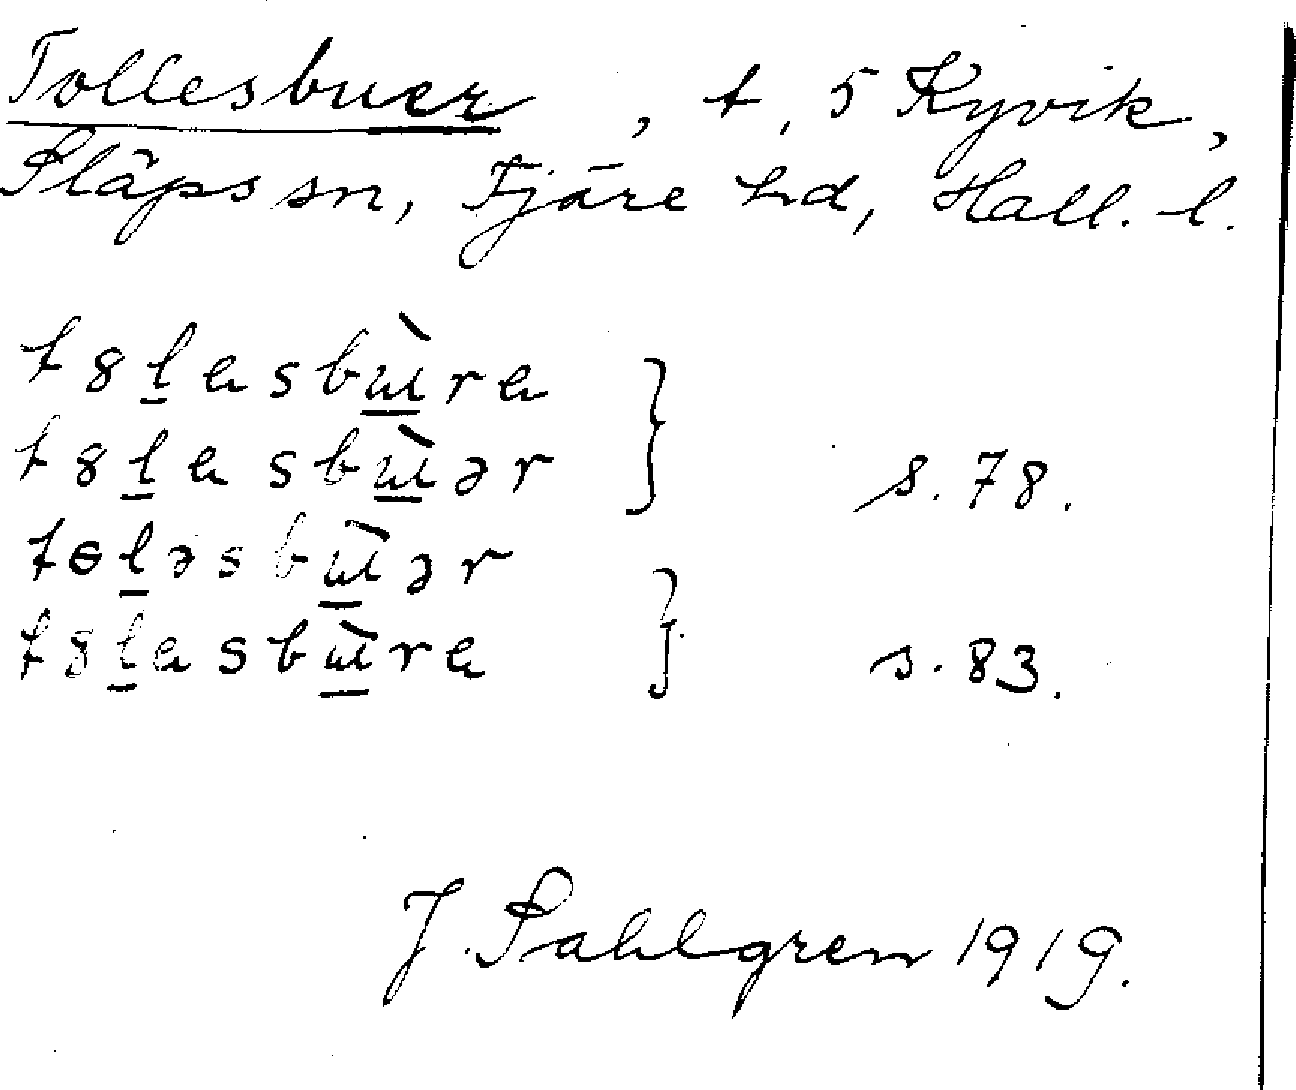 Tollesbuer, t, 5 Kyvik,
Släps sn, Fjäre hd, Hall. l.
t8l̲asbɯ̲̀ra
t8l̲asbɯ̲̀ər } s. 78.
tɵl̲əsbɯ̲̀ər
t8l̲asbɯ̲̀ra } s. 83.
J. Sahlgren 1919.